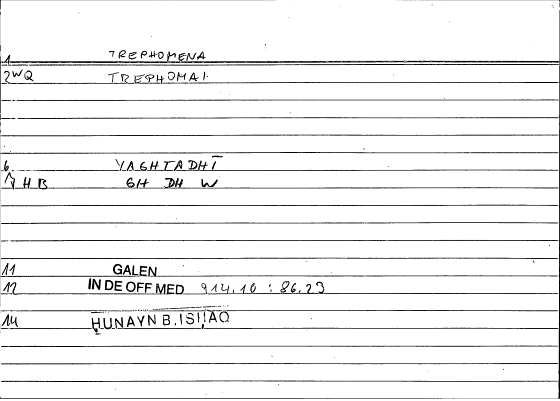 1 TREPHOMENA
2WQ TREPHOMAI
6 YAGHTADHĪ
7 HB GH DH W
11 GALEN
12 IN DE OFF MED 914.10 : 86.23
14 ḤUNAYN B. ISḤAQ